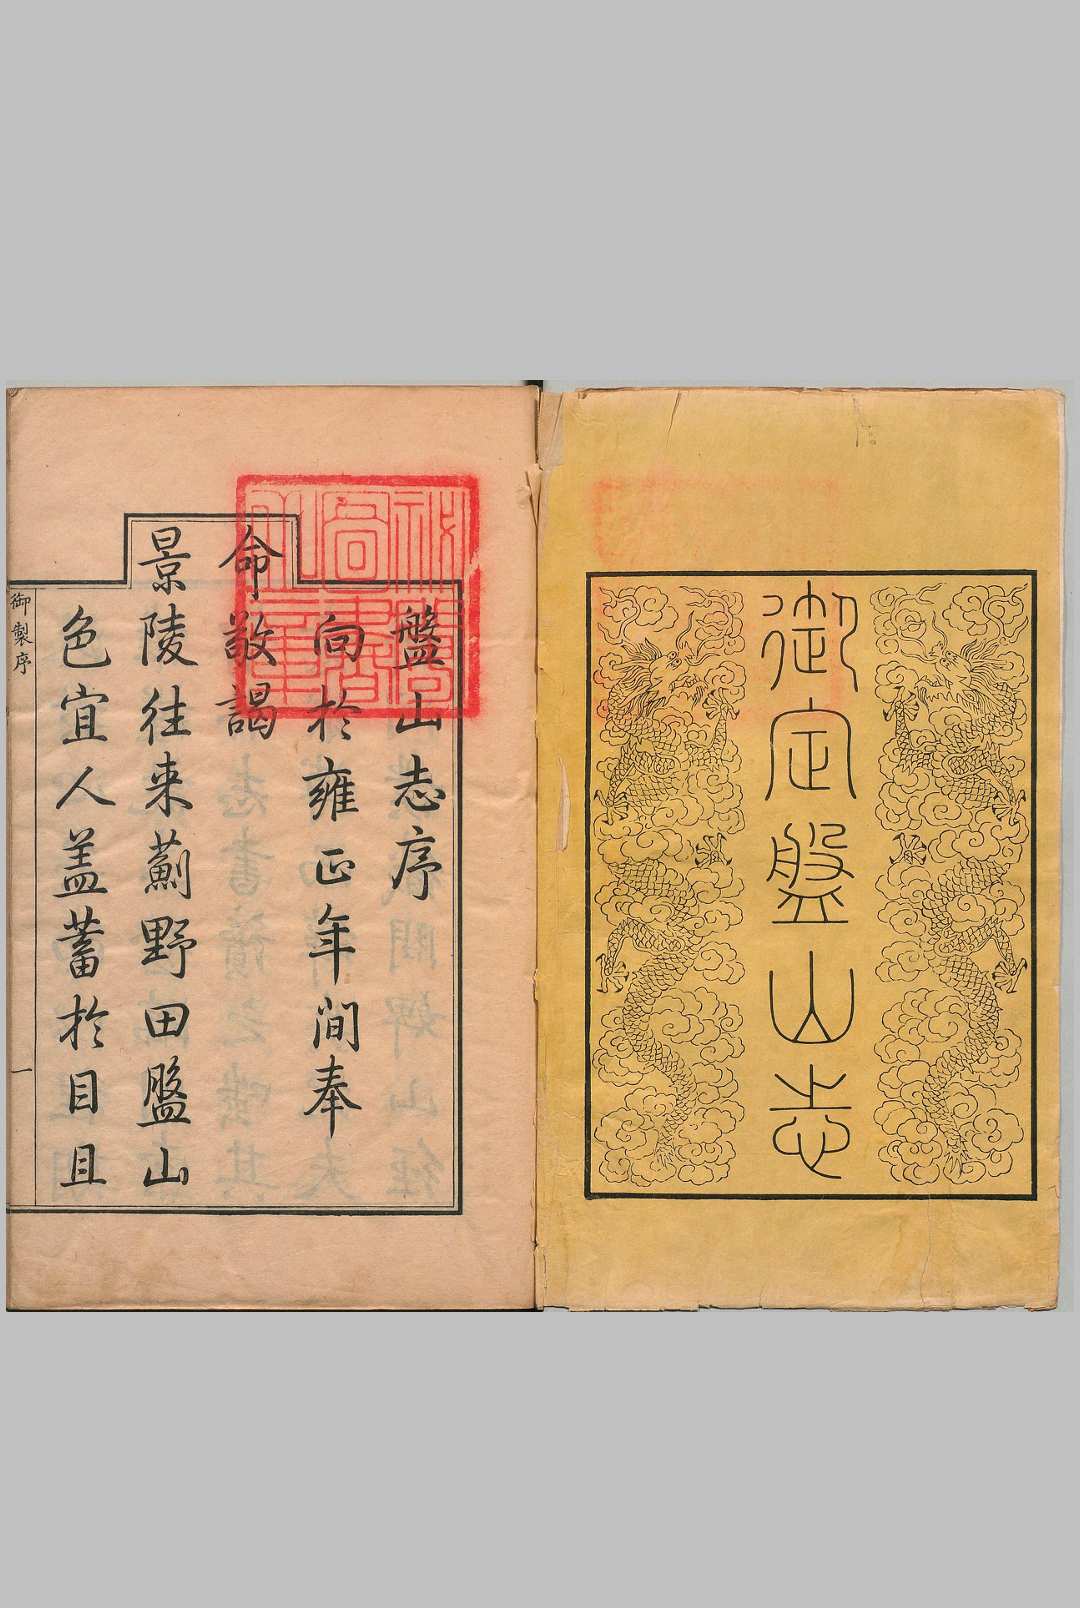 御定盤山志
盤山志序
向於雍正年間奉
命敬謁
景陵往来薊野田盤山
色宜人盖蓄於目且
御製序
一